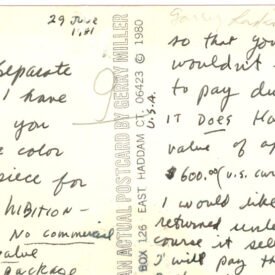 29 June
1981
Separate
I have
you
color
piece for
HIBITION –
No commercial
value
package
AN ACTUAL POSTCARD BY GERRY MILLER
BOX 126 EAST HADDAM CT. 06423 © 1980
U.S.A.
so that you
wouldn't
to pay du
IT DOES Ha
value of ap
$600.00 U.S. curr
I would like
returned unle
course it sel
I will pay t